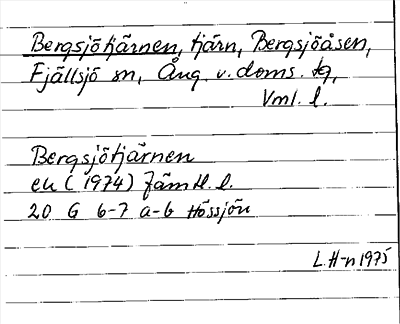 Bergsjötjärnen, tjärn, Bergsjöåsen,
Fjällsjö sn, Ång. v. doms. tg,
Vnl. l.
Bergsjötjärnen
ek (1974) Jämtl. l.
20 G 6-7 a-b Hössjön
L. H-n 1975